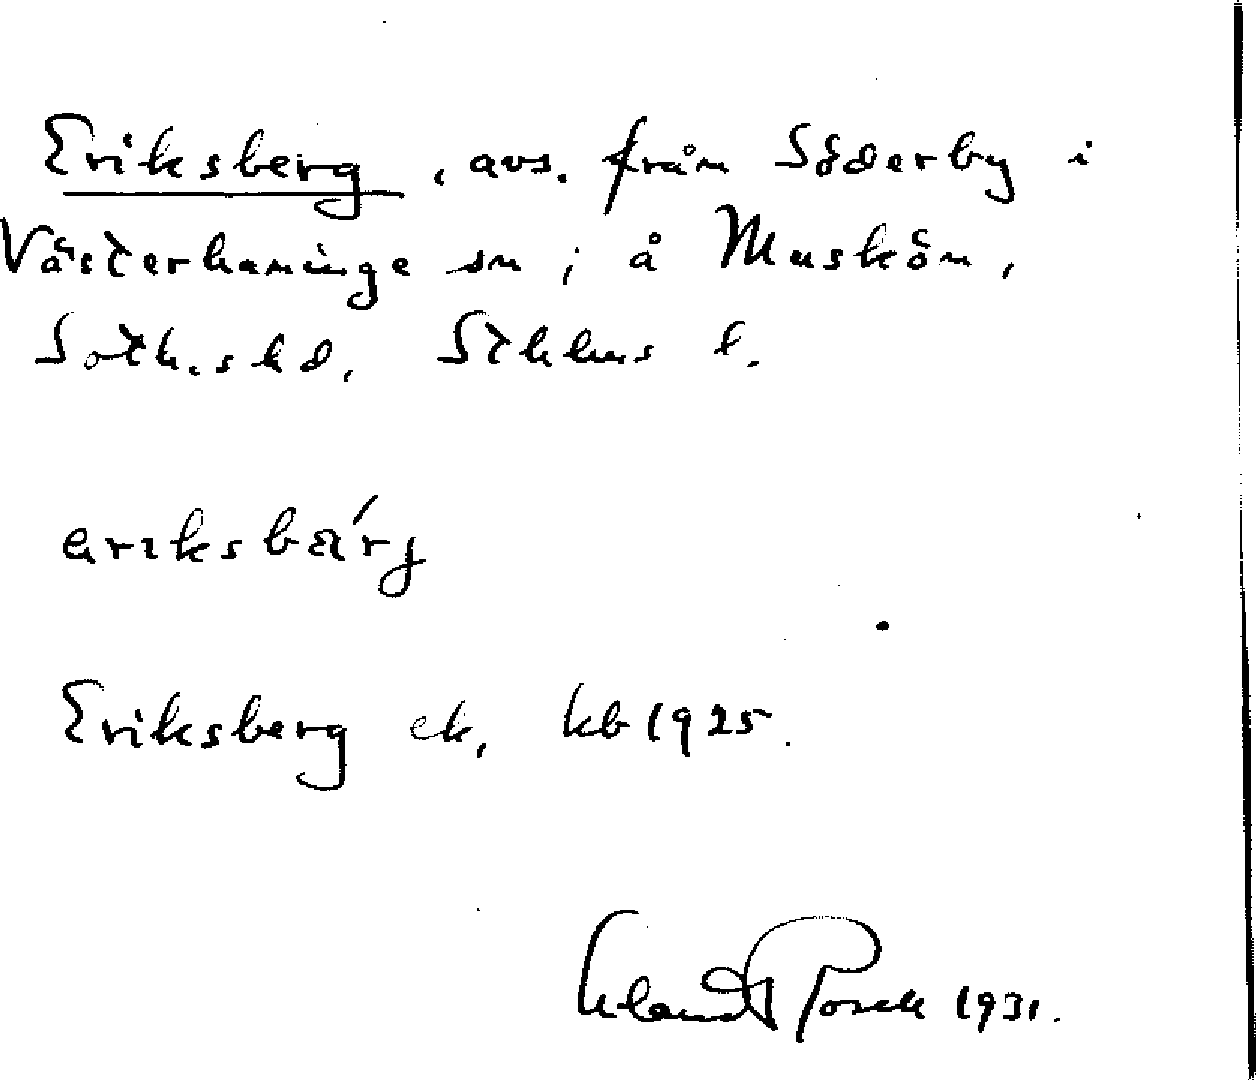 Eriksberg, avs. från Söderby i
Västerhaninge sn; å Muskön,
Soth.s hd, Sthlms l.
eriksbäŕj
Eriksberg ek, kb 1925.
1931.